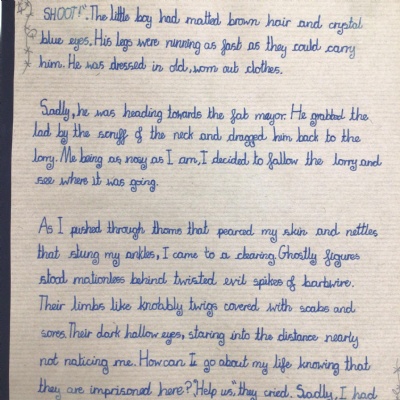 SHOOT!". The little boy had matted brown hair and crystal
blue eyes. His legs were running as fast as they could carry
him. He was dressed in old, worn out clothes.
Sadly, he was heading towards the fab meyor. He grabbed the
lad by the scruff of the neck and dragged him back to the
lorry. Me being as nosy as I am, I decided to fallow the lorry and
see where it was going.
As I pushed through thorns that pearced my skin and nettles
that stung my ankles, I came to a clearing. Ghostly figures
stood motionless behind twisted evil spikes of barbwire.
Their limbs like knobbly twigs covered with scabs and
sores. Their dark hallow eyes, staring into the distance nearly
not noticing me. How can I go about my life knowing that
they are imprisoned here? "Help us," they cried. Sadly, I had